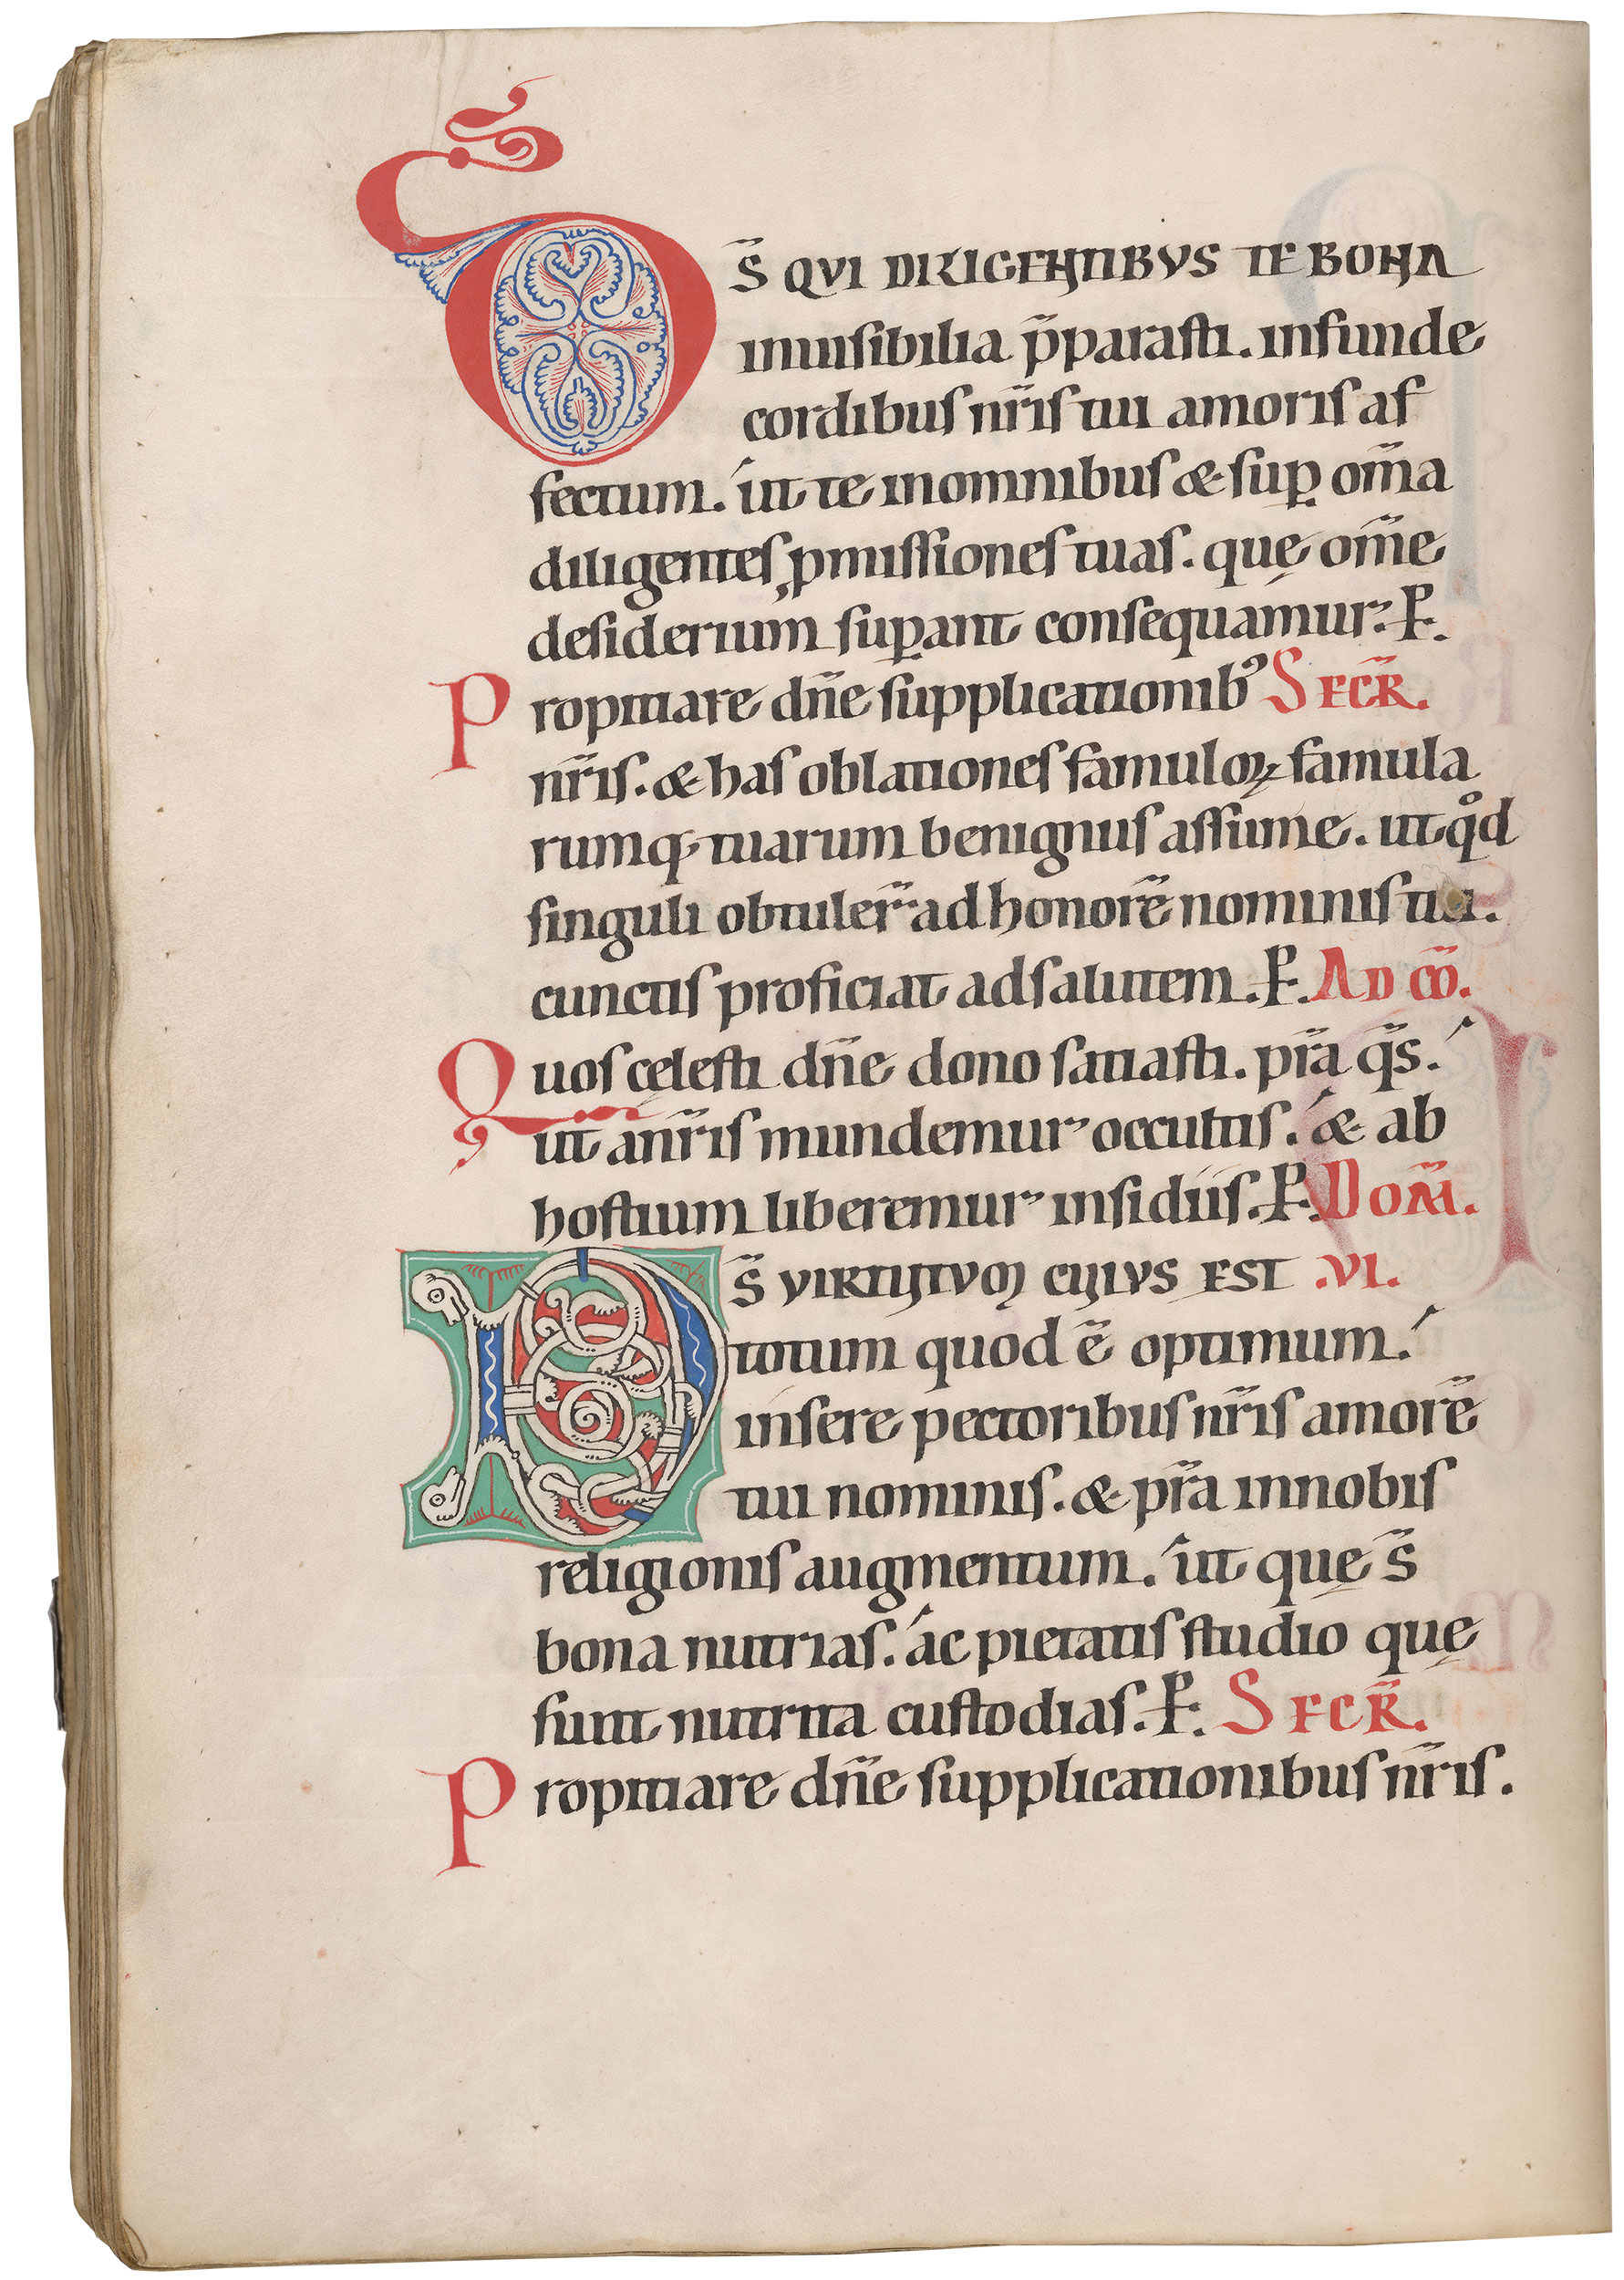 DS̄ QVI DILIGENTIBVS TE BONA
inuisibilia p̄parasti. infunde
cordibus nr̄is tui amoris af
fectum. ut te in omnibus & sup̱ om̄a
diligentes ꝓmissiones tuas. quę om̄e
desiderium sup̱ant consequamur. P.
Propitiare dn̄e supplicationibꝰ SECR̄.
nr̄is. & has oblationes famuloꝝ famula
rumq; tuarum benignus assume. ut qͦd
singuli obtuler̄ ad honorē nominis tui.
cunctis proficiat ad salutem. P. AD CŌ.
Quos cęlesti dn̄e dono satiasti. pr̄a q̄s.
ut a nr̄is mundemur occultis. & ab
hostium liberemur insidiis. P. DOM̄.
DS̄ VIRTVTVꝜ CVIVS EST .VI.
totum quod ē optimum.
insere pectoribus nr̄is amorē
tui nominis. & pr̄a in nobis
religionis augmentum. ut quę s̄
bona nutrias. ac pietatis studio quę
sunt nutrita custodias. P. SECR̄.
Propitiare dn̄e supplicationibus nr̄is.